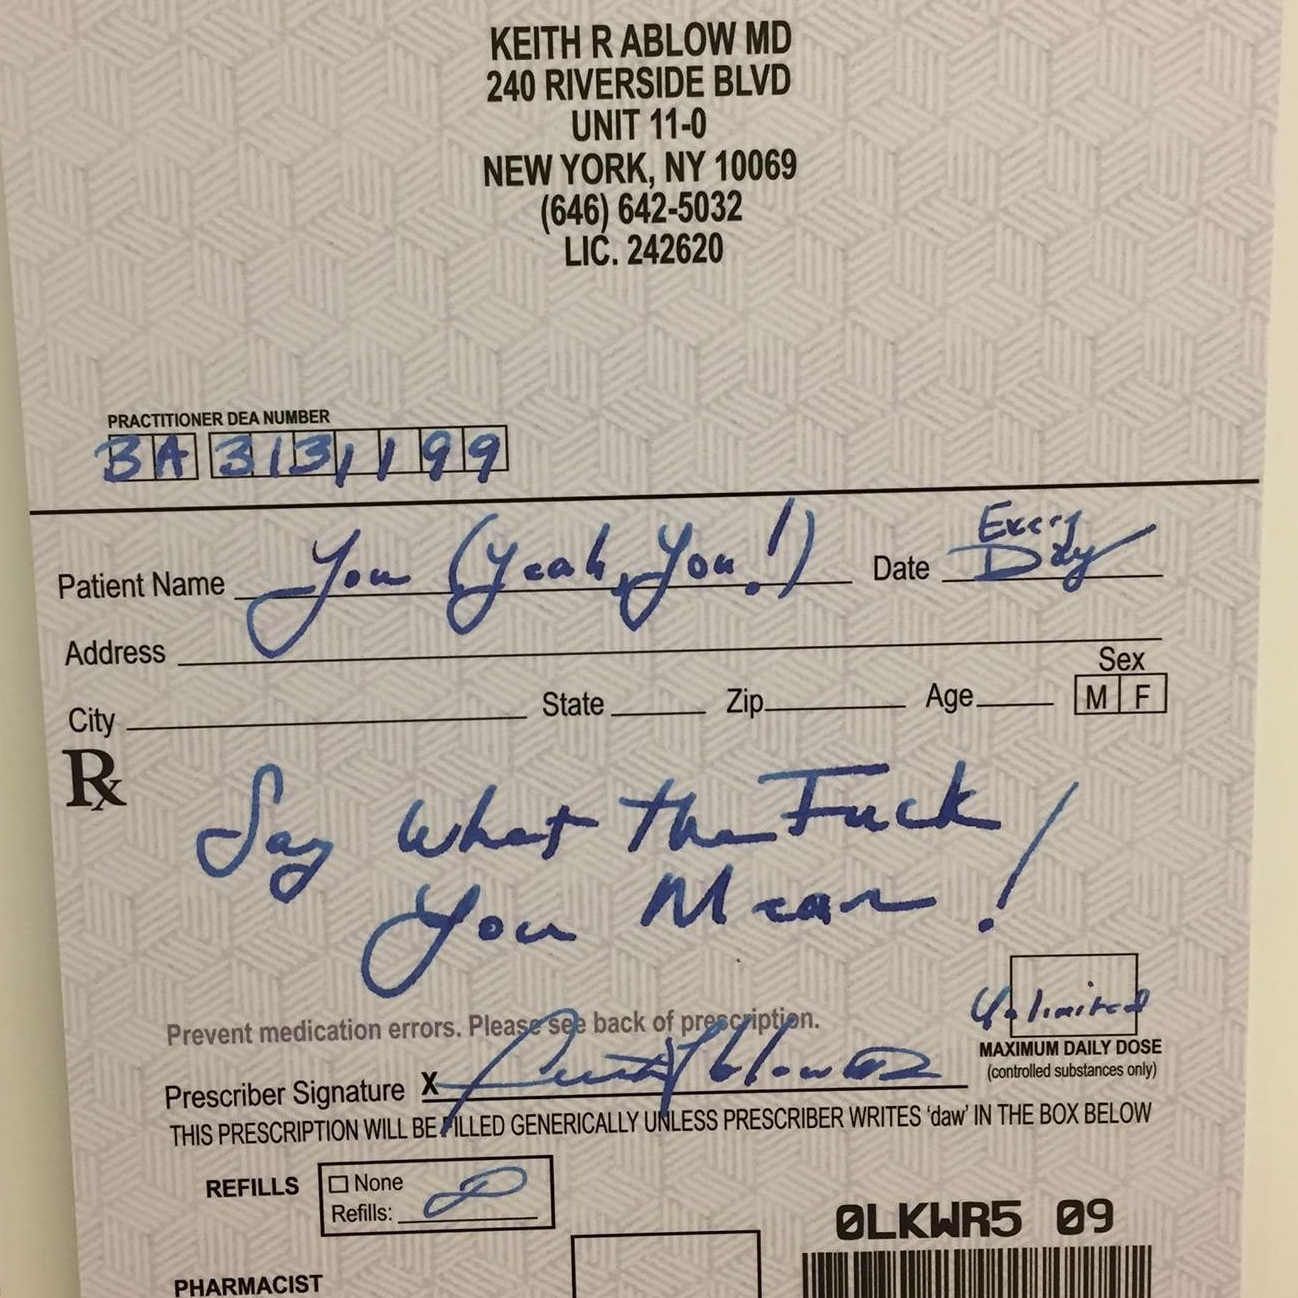 KEITH R ABLOW MD
240 RIVERSIDE BLVD
UNIT 11-0
NEW YORK, NY 10069
(646) 642-5032
LIC. 242620
PRACTITIONER DEA NUMBER
BA 3131199
Patient Name You (Yeah, You!) Date Every Day
Address
Sex
City State Zip Age M F
Rx
Say What the Fuck
You Mean!
Unlimited
Prevent medication errors. Please see back of prescription.
MAXIMUM DAILY DOSE
(controlled substances only)
Prescriber Signature X
THIS PRESCRIPTION WILL BE FILLED GENERICALLY UNLESS PRESCRIBER WRITES 'daw' IN THE BOX BELOW
REFILLS None
Refills: ∞
0LKWR5 09
PHARMACIST